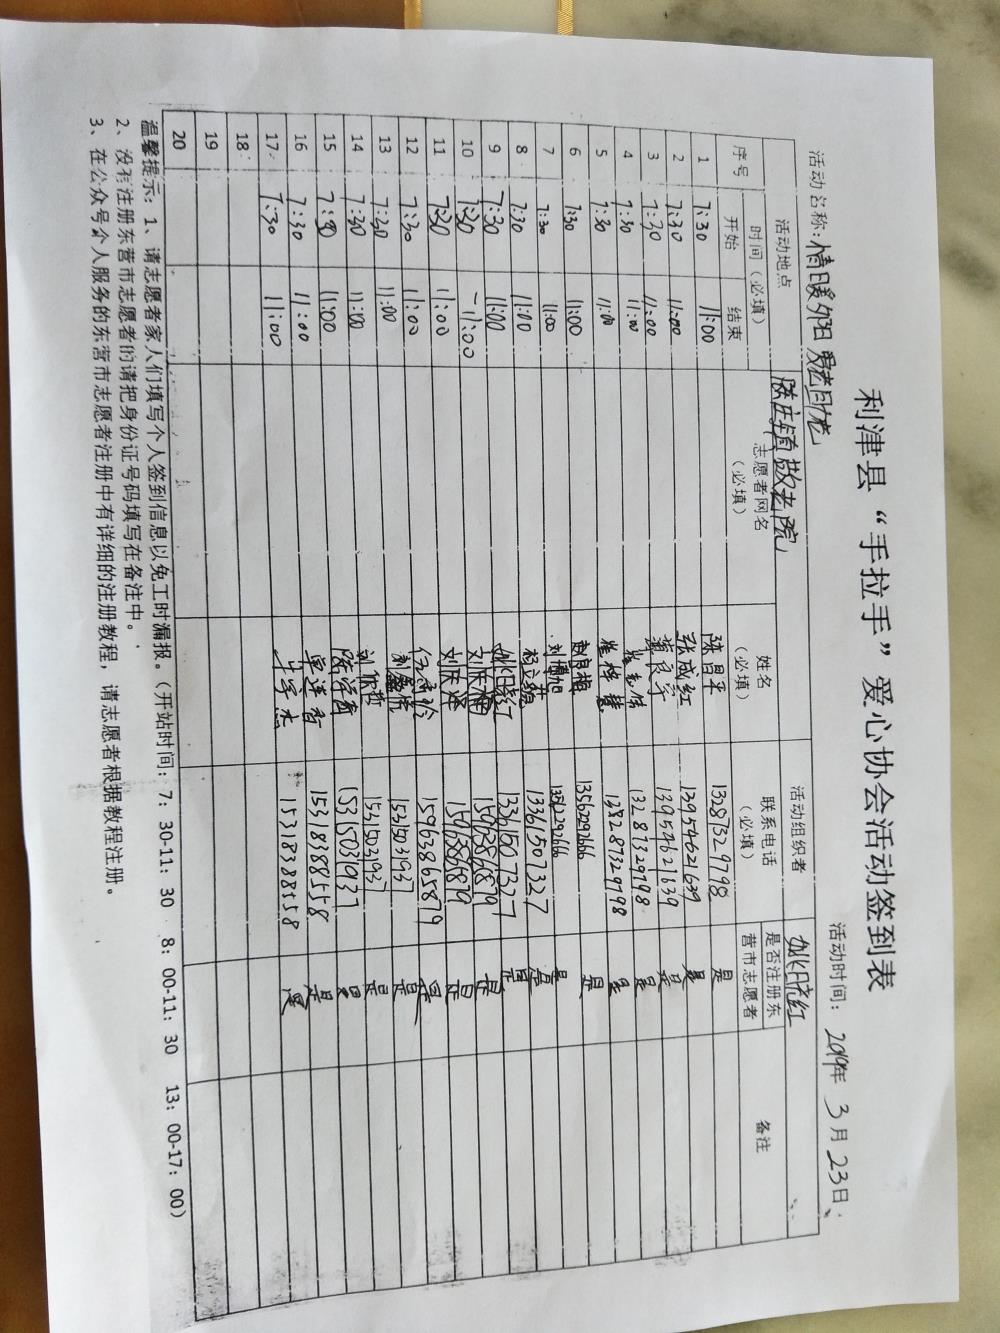 利津县“手拉手”爱心协会活动签到表
活动名称: 情暖夕阳 爱老敬老 活动时间: 2019年 3月23日
活动地点 陈庄镇敬老院 活动组织者 姚晓红
序号 时间（必填） 志愿者网名（必填） 姓名（必填） 联系电话（必填） 是否注册东营市志愿者 备注
开始 结束
1 7:30 11:00 陈昌平 13287329798 是
2 7:30 11:00 张成红 13954621639 是
3 7:30 11:00 黄良亭 13954621639 是
4 7:30 11:00 13287329798 是
5 7:30 11:00 13287329798 是
6 7:30 11:00 赵良梅 13562092666 是
7 7:30 11:00 刘博旭 是
8 7:30 11:00 13361507327 是
9 7:30 11:00 姚晓红 13361507327 是
10 7:30 11:00 15963865879 是
11 7:30 11:00 15963865879 是
12 7:30 11:00 15963865879 是
13 7:30 11:00 15315031937 是
14 7:30 11:00 15315031937 是
15 7:30 11:00 15315031937 是
16 7:30 11:00 单连香 15318388558 是
17 7:30 11:00 15318388558 是
18
19
20
温馨提示: 1、请志愿者家人们填写个人签到信息以免工时漏报。（开站时间: 7: 30-11: 30 8: 00-11: 30 13: 00-17: 00）
2、没有注册东营市志愿者的请把身份证号码填写在备注中。
3、在公众号个人服务的东营市志愿者注册中有详细的注册教程，请志愿者根据教程注册。